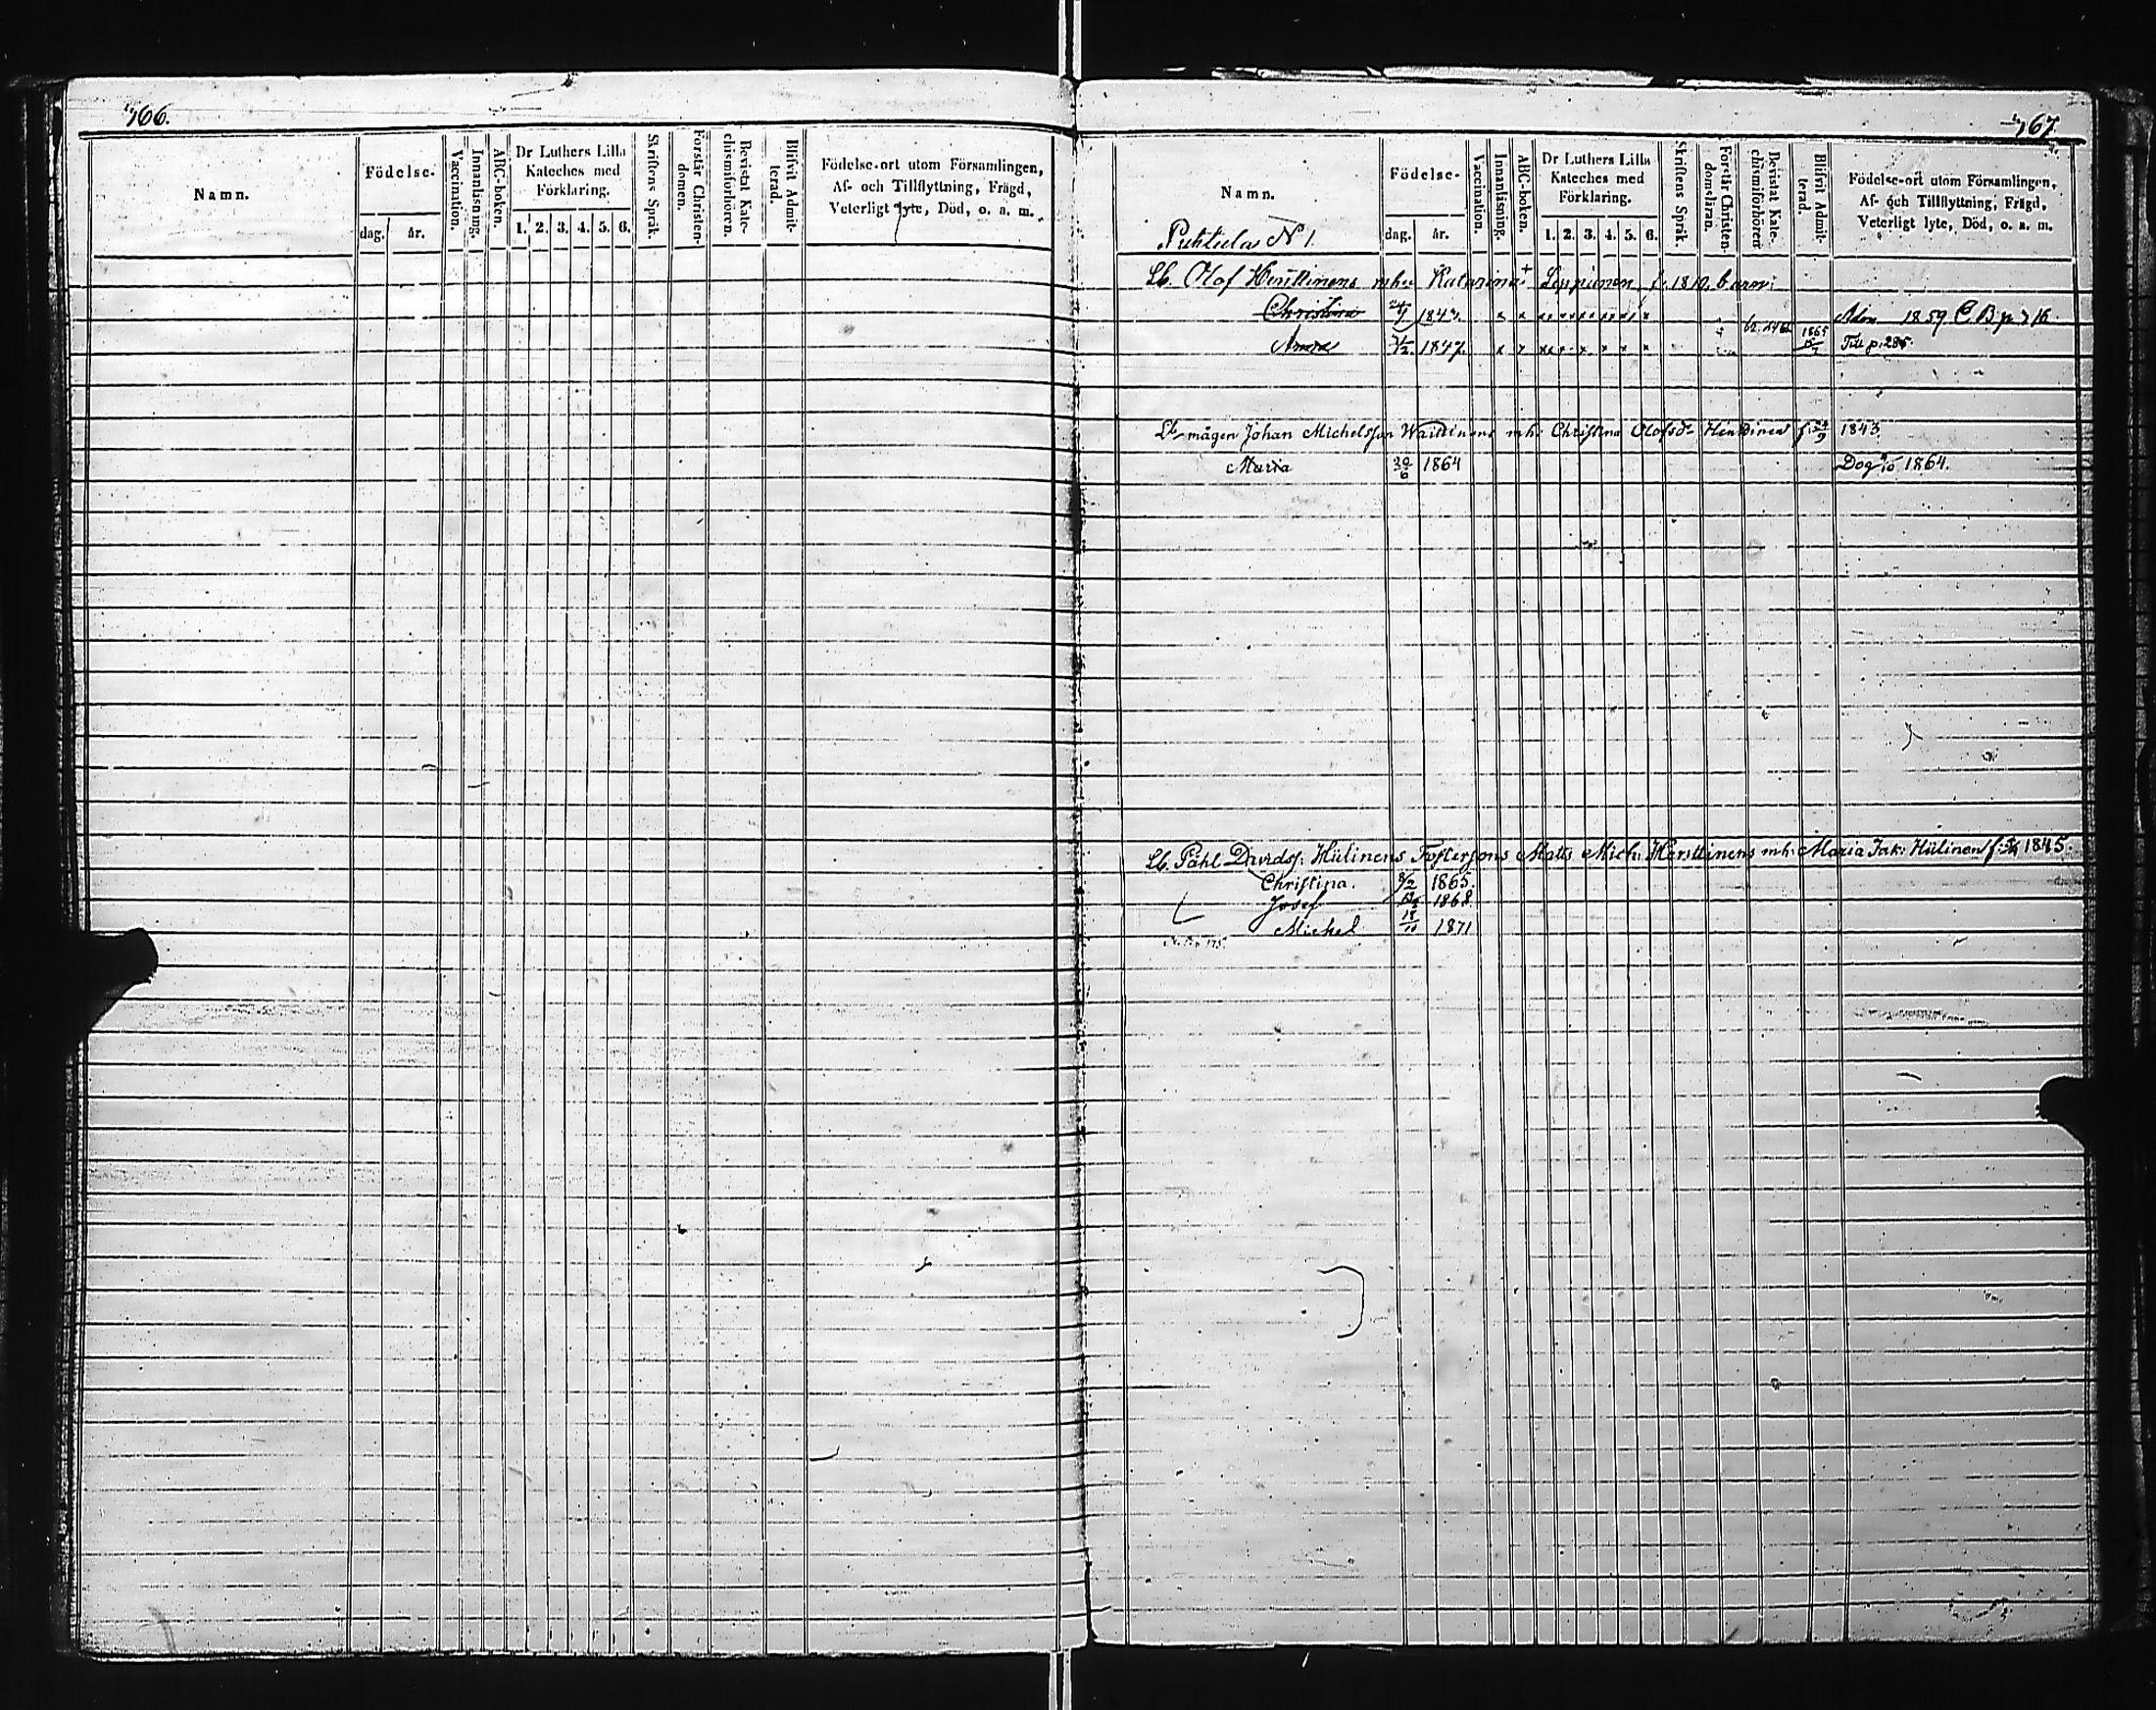 766.
Namn.
Födelse-
dag. år.
Vaccination.
Innanläsning.
ABC-boken.
Dr Luthers Lilla
Kateches med
Förklaring.
1. 2. 3. 4. 5. 6.
Skriftens Språk.
Förstår Christen-
domen.
Bevistat Kate-
chismiförhören.
Blifvit Admit-
terad.
Födelse-ort utom Församlingen,
Af- och Tillflyttning, Frägd,
Veterligt lyte, Död, o. a. m.
767.
Namn.
N 1.
Födelse-
dag. år.
Vaccination.
Innanläsning.
ABC-boken.
Dr Luthers Lilla
Kateches med
Förklaring.
1. 2. 3. 4. 5. 6.
Skriftens Språk.
Förstår Christen-
domsläran.
Bevistat Kate-
chismiförhören
Blifvit Admit-
terad.
Födelse-ort utom Församlingen,
Af- och Tillflyttning, Frägd,
Veterligt lyte, Död, o. a. m.
Lb. Olof mh Katarina Leppinen f. 1810. barn:
Christina 1843. 1859 C. B. p. 716
Anna 1847. 1865 Till p. 285.
Lb mågen Johan Michelsson mh: Christina Olofsdr f. 24/9 1843.
Maria 30/6 1864 Dog 1864.
Lb. Påhl Davidss: Hiilinens Fostersons Matts Mich: mh: Maria Jak: Hiilinen f: 1845.
Christina. 8/2 1865.
Josef 1868.
Michel 18/11 1871